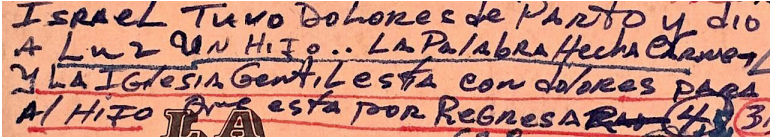 Israel Tuvo Dolores de Parto y dio
A Luz Un Hijo.. La Palabra Hecha Carne,
Y La Iglesia Gentil esta con dolores para
Al Hijo Que esta por Regresar
LA